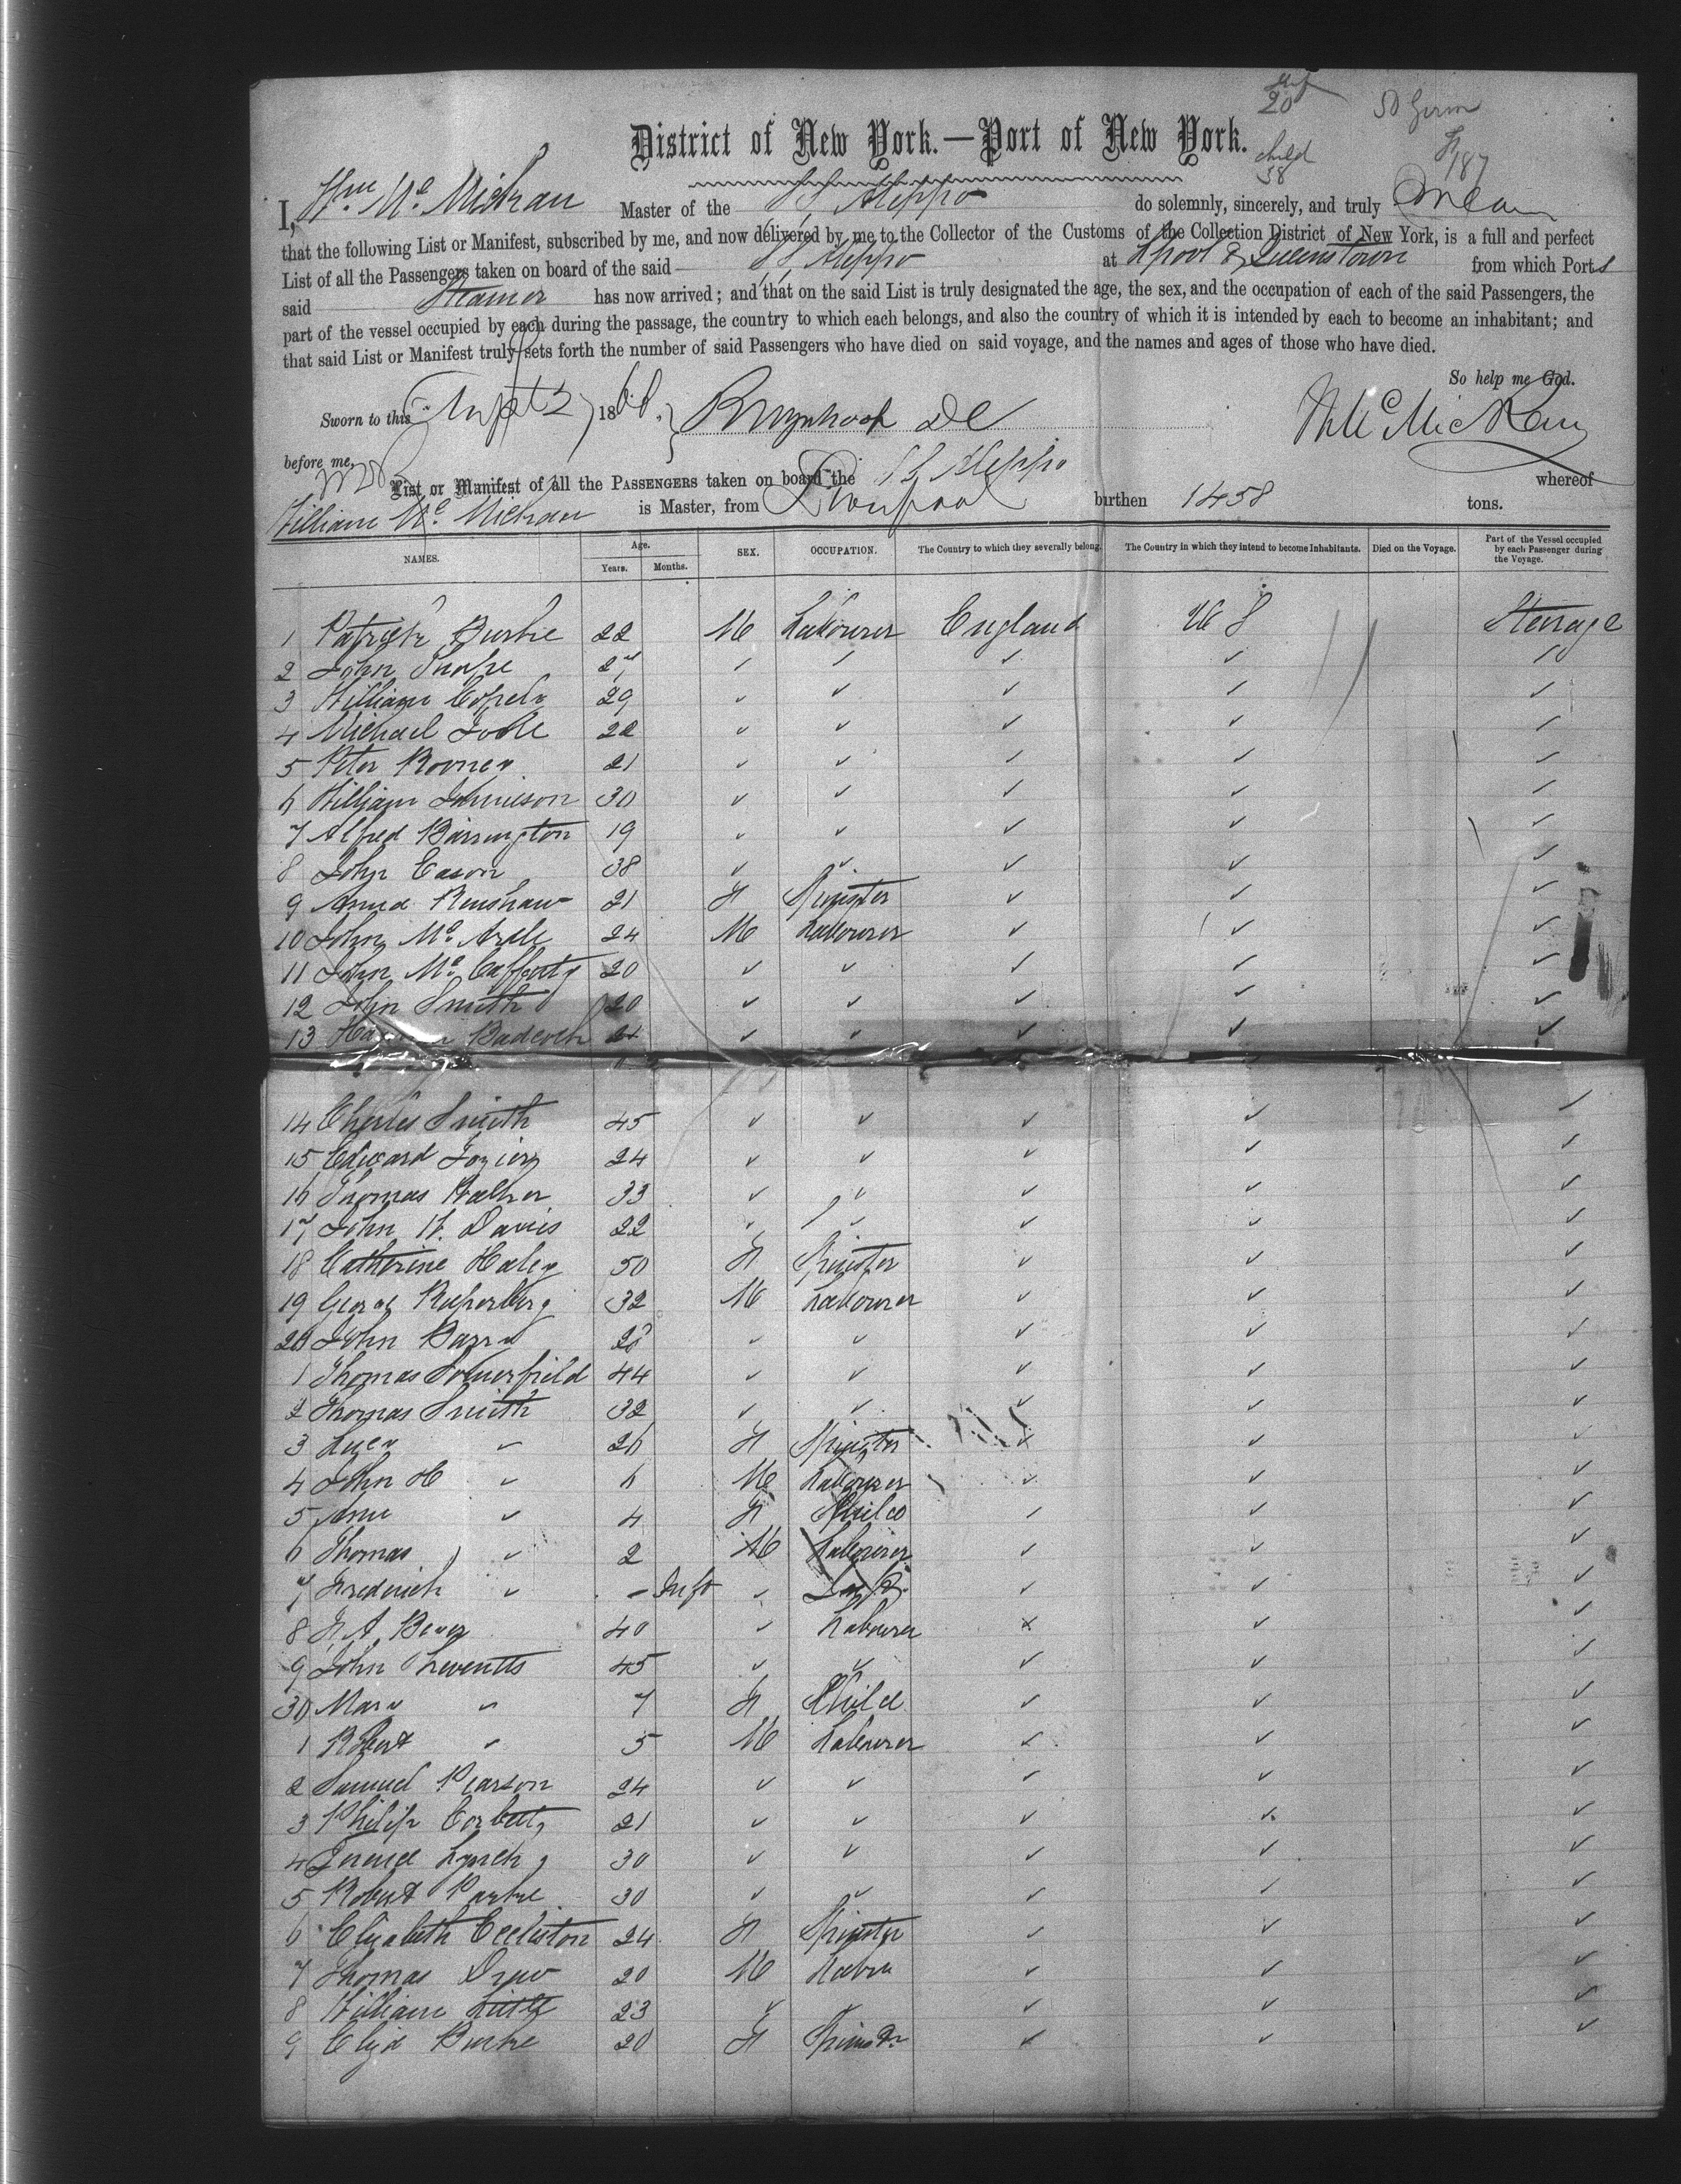 20
50 Germ
child
38
187
District of New York.—Port of New York.
I, Wm Mc Mickan Master of the SS Aleppo do solemnly, sincerely, and truly Swear
that the following List or Manifest, subscribed by me, and now delivered by me to the Collector of the Customs of the Collection District of New York, is a full and perfect
List of all the Passengers taken on board of the said SS Aleppo at Lpool & Queenstown from which Ports
said Steamer has now arrived; and that on the said List is truly designated the age, the sex, and the occupation of each of the said Passengers, the
part of the vessel occupied by each during the passage, the country to which each belongs, and also the country of which it is intended by each to become an inhabitant; and
that said List or Manifest truly sets forth the number of said Passengers who have died on said voyage, and the names and ages of those who have died.
So help me God.
Sworn to this Sept 2 1868. W Mc Mickan
before me,
List or Manifest of all the PASSENGERS taken on board the SS Aleppo whereof
William Mc Mickan is Master, from Liverpool birthen 1458 tons.
NAMES. Age. Years. Months. SEX. OCCUPATION. The Country to which they severally belong. The Country in which they intend to become Inhabitants. Died on the Voyage. Part of the Vessel occupied by each Passenger during the Voyage.
1 Patrick Burke 22 M Labourer England U S Steerage
2 John Thorpe 27 ✓ ✓ ✓ ✓ ✓
3 William 29 ✓ ✓ ✓ ✓ ✓
4 Michael Toole 22 ✓ ✓ ✓ ✓ ✓
5 Peter Rooney 21 ✓ ✓ ✓ ✓ ✓
6 William Jamieson 30 ✓ ✓ ✓ ✓ ✓
7 Alfred Barrington 19 ✓ ✓ ✓ ✓ ✓
8 John Eason 38 ✓ ✓ ✓ ✓ ✓
9 Anna Renshaw 21 F Spinster ✓ ✓ ✓
10 John Mc Ardle 24 M Labourer ✓ ✓ ✓
11 John Mc Cafferty 20 ✓ ✓ ✓ ✓ ✓
12 John Smith 20 ✓ ✓ ✓ ✓ ✓
13 Badcock 24 ✓ ✓ ✓ ✓ ✓
14 Charles Smith 45 ✓ ✓ ✓ ✓ ✓
15 Edward 24 ✓ ✓ ✓ ✓ ✓
16 Thomas Walker 33 ✓ ✓ ✓ ✓ ✓
17 John W. Davis 22 ✓ ✓ ✓ ✓ ✓
18 Catherine Haley 50 F Spinster ✓ ✓ ✓
19 George 32 M Labourer ✓ ✓ ✓
20 John Barry ✓ ✓ ✓ ✓ ✓
1 Thomas Somerfield 44 ✓ ✓ ✓ ✓ ✓
2 Thomas Smith 32 ✓ ✓ ✓ ✓ ✓
3 Lucy ✓ 26 F Spinster ✓ ✓ ✓
4 John H ✓ 6 M Labourer ✓ ✓ ✓
5 Ann ✓ 4 F Child ✓ ✓ ✓
6 Thomas ✓ 2 M Labourer ✓ ✓ ✓
7 Frederick ✓ - Inft ✓ ✓ ✓ ✓
8 40 ✓ Labourer ✓ ✓ ✓
9 John Leventts 45 ✓ ✓ ✓ ✓ ✓
30 Mary ✓ 7 F Child ✓ ✓ ✓
1 Robert ✓ 5 M Labourer ✓ ✓ ✓
2 Samuel Pearson 24 ✓ ✓ ✓ ✓ ✓
3 Philip Corbett 21 ✓ ✓ ✓ ✓ ✓
4 Terence Lynch 30 ✓ ✓ ✓ ✓ ✓
5 Robert Parke 30 ✓ ✓ ✓ ✓ ✓
6 Elizabeth Eccleston 24 F Spinster ✓ ✓ ✓
7 Thomas Drew 20 M Labr ✓ ✓ ✓
8 William Little 23 ✓ ✓ ✓ ✓ ✓
9 Eliza Burke 20 F Spinstr ✓ ✓ ✓